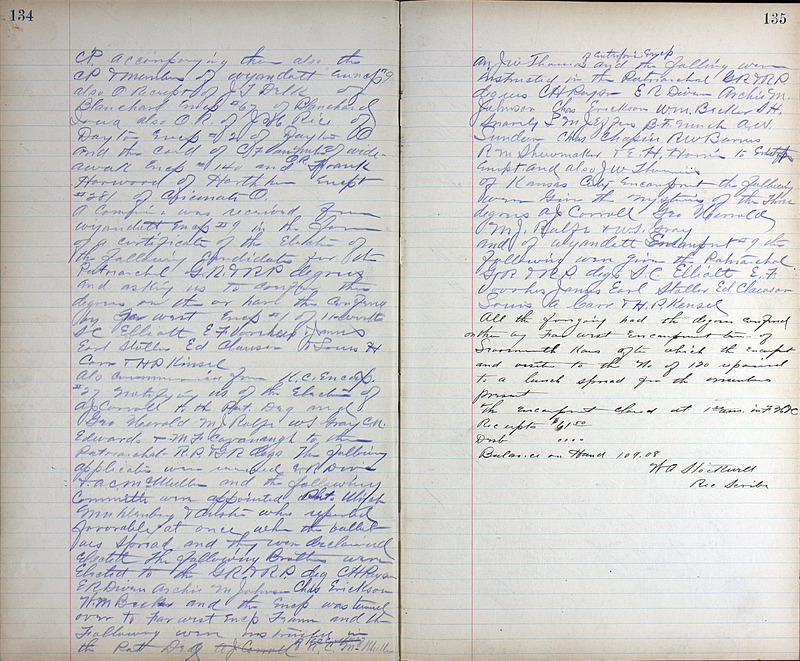 134
CP. accompanying them also the
CP & members of Wyandott Encp #9
also C R ceipt of J T Delk of
Blanchard Encp #67 of Blanchard
Iowa also C.R. of J H Rice of
Dayton Encp #12 of Dayton O
and the card of C F of wide-
awak Encp #140 and C.P. Frank
Harwood of Hartthin Encpt
#281 of Cincinnatti O.
A Comm was received from
Wyandott Encp #9 in the form
of a certificate of the Election of
the following Candidates for the
Patriarchal G.R. & R.P degrees
and asking us to confer the
degrees on the or have the confered
by Far West Encp #1 of
S C Elliott E F Voorhees James
Earl Stoller Ed Clawson & Louis H
Carr & H P Kinsel
Also communication from K. C. Encp.
#27 notifying us of the Election of
A J Corroll to the Pat. Deg and
Geo Harrold M J Rolfe W S Gray C M
Edwards & M F Cavanaugh to the
Patriarchal R.P. & G.R degs. The following
application were E R Diven
& A C McMullen and the following
Committe were appointed Ulrich
Muhlenberg & who reported
favorable at once when the ballot
was spread and they were declaired
Elected The following Brothers were
Elected to the G.R. & R.P deg C H Payson
E R Diven Archie M Johnson Chas Erickson
W.M Becker and the Encp was turned
over to Far West Encp Team and the
Following were instructed in
the Pat Deg A J Corroll A C McMullen
135
and J W Thomas of Enterprise Encp and the falling were
instructed in the Patriarchal G.R. & R.P
degrees C H Payson E R Diven Archie M.
Johnson Chas Erickson Wm. Becker
L M Jeffers B F A.W.
Sunder Chas Chapin R W Barnes
R M Shewmaker & E. H. Horne to Enterprise
Encpt and also J W Thomas
of Kansas City Encampment the following
were Given the mysteries of the three
degrees A J Corroll Geo Harrold
M. J. Rolfe & W S. Gray
and of Wyandott Encampment #9 the
following were given the Patriarchal
G R & R.P degs S C Elliott E. F.
Voorhes James Earl Stoller Ed Clawson
Louis A Carr & H. P Kensel
All the forgoing had the degrees confered
on them by Far West Encampment team of
Leavenworth Kans after which the encampt
and visitors to the No. of 120 repaired
to a lunch spread for the members
present
The Encampment closed at in F H & C
Receipts $61.50
Dsb ....
Balance on Hand 109.08
W A Stockwell
Rec Scribe